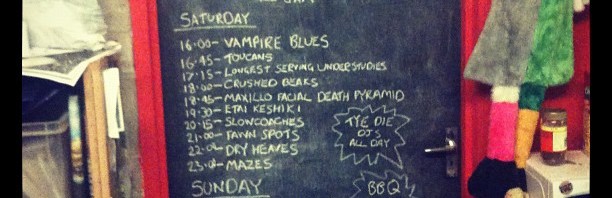 SATURDAY
16:00- VAMPIRE BLUES
16:45- TOUCANS
17:15- LONGEST SERVING UNDERSTUDIES
18:00- CRUSHED BEAKS
18:45- MAXILLO FACIAL DEATH PYRAMID
19:30- ETAI KESHIKI
20:15- SLOWCOACHES
21:00- FAWN SPOTS
22:00- DRY HEAVES
23:00- MAZES
TYE DIE
DJ'S
ALL DAY
SUNDAY
BBQ